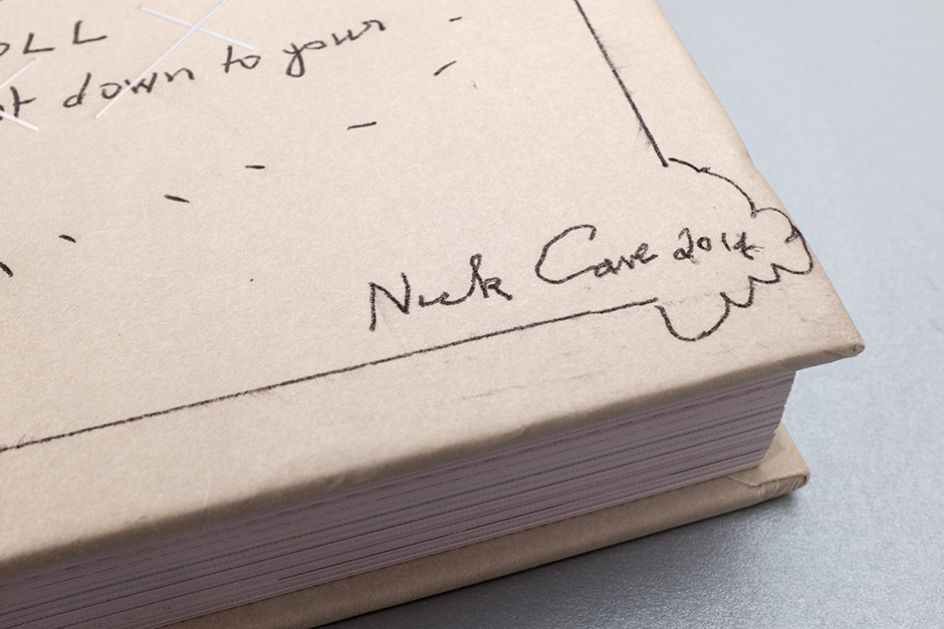 OLL
t down to your
Nick Cave 2014